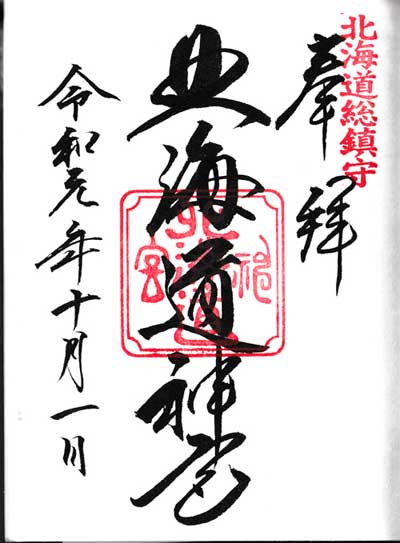 北海道総鎮守
奉拝
北海道神宮
令和元年十月一日